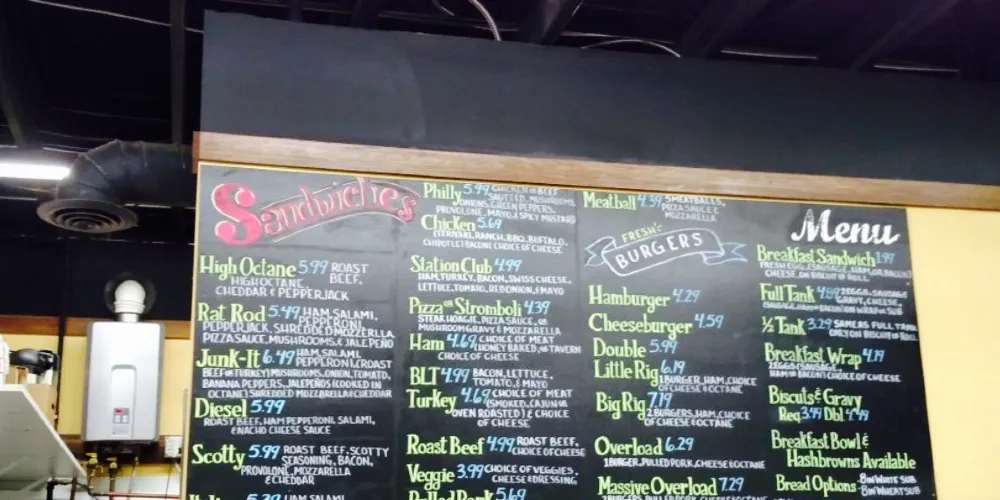 Sandwiches
High Octane 5.99 ROAST
BEEF,
HIGH OCTANE,
CHEDDAR & PEPPERJACK
Rat Rod 5.49 HAM, SALAMI,
PEPPERONI,
PEPPERJACK, SHREDDED MOZZERLLA,
PIZZA SAUCE, MUSHROOMS, & JALEPEÑO
Junk-It 6.49 HAM, SALAMI,
PEPPERONI, (ROAST
BEEF OR TURKEY) MUSHROOMS, ONION, TOMATO,
BANANA PEPPERS, JALEPEÑOS (COOKED IN
OCTANE) SHREDDED MOZZARELLA & CHEDDAR
Diesel 5.99
ROAST BEEF, HAM, PEPPERONI, SALAMI,
& NACHO CHEESE SAUCE
Scotty 5.99 ROAST BEEF, SCOTTY
SEASONING, BACON,
PROVOLONE, MOZZARELLA
& CHEDDAR
5.39 HAM, SALAMI,
Philly 5.99 CHICKEN OR BEEF
SAUTTED, MUSHROOMS,
ONIONS, GREEN PEPPERS,
PROVOLONE, MAYO & SPICY MUSTARD
Chicken 5.69
(TERIYAKI, RANCH, BBQ, BUFFALO,
CHIPOTLE) BACON & CHOICE OF CHEESE
Station Club 4.99
HAM, TURKEY, BACON, SWISS CHEESE,
LETTUCE, TOMATO, RED ONION, & MAYO
Pizza or Stromboli 4.39
STEAK HOAGIE, PIZZA SAUCE, OR
MUSHROOM GRAVY & MOZZARELLA
Ham 4.69 CHOICE OF MEAT
(HONEY BAKED, OR TAVERN
CHOICE OF CHEESE
BLT 4.99 BACON, LETTUCE,
TOMATO, & MAYO
Turkey 4.69 CHOICE OF MEAT
(SMOKED, CAJUN OR
OVEN ROASTED) & CHOICE
OF CHEESE
Roast Beef 4.99 ROAST BEEF,
CHOICE OF CHEESE
Veggie 3.99 CHOICE OF VEGGIES,
CHEESE & DRESSING
Pulled Pork 5.69
Meatball 4.39 5 MEATBALLS,
PIZZA SAUCE &
MOZZARELLA
FRESH
BURGERS
Hamburger 4.29
Cheeseburger 4.59
Double 5.99
Little Rig 6.19
1 BURGER, HAM, CHOICE
OF CHEESE & OCTANE
Big Rig 7.19
2 BURGERS, HAM, CHOICE
OF CHEESE & OCTANE
Overload 6.29
1 BURGER, PULLED PORK, CHEESE & OCTANE
Massive Overload 7.29
2 BURGERS, PULLED PORK, CHEESE & OCTANE
Menu
Breakfast Sandwich 1.97
FRESH EGG, (SAUSAGE, HAM, OR BACON)
CHEESE, ON BISCUIT OR ROLL
Full Tank 2 EGGS, SAUSAGE
GRAVY, CHEESE,
(SAUSAGE, HAM OR BACON) ON WRAP OR SUB
½ Tank 3.29 SAME AS FULL TANK
ONLY ON BISCUIT OR ROLL
Breakfast Wrap 4.19
2 EGGS (SAUSAGE,
HAM OR BACON) CHOICE OF CHEESE
Biscuts & Gravy
Reg 3.49 Dbl 4.49
Breakfast Bowl &
Hashbrowns Available
Bread Options - 8IN WHITE SUB
8IN WHEAT SUB